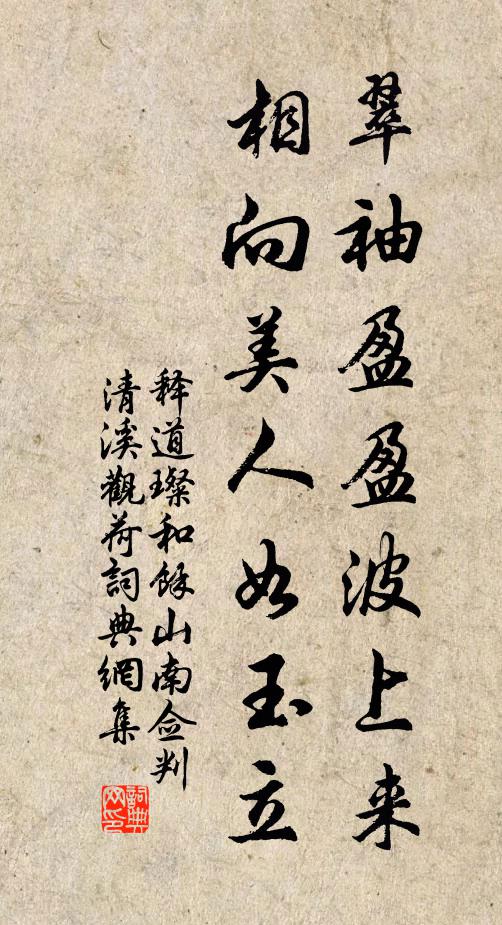 翠袖盈盈波上来
相向美人如玉立
释道璨和馀山南佥判
清溪觀荷詞典網集
詞典网印